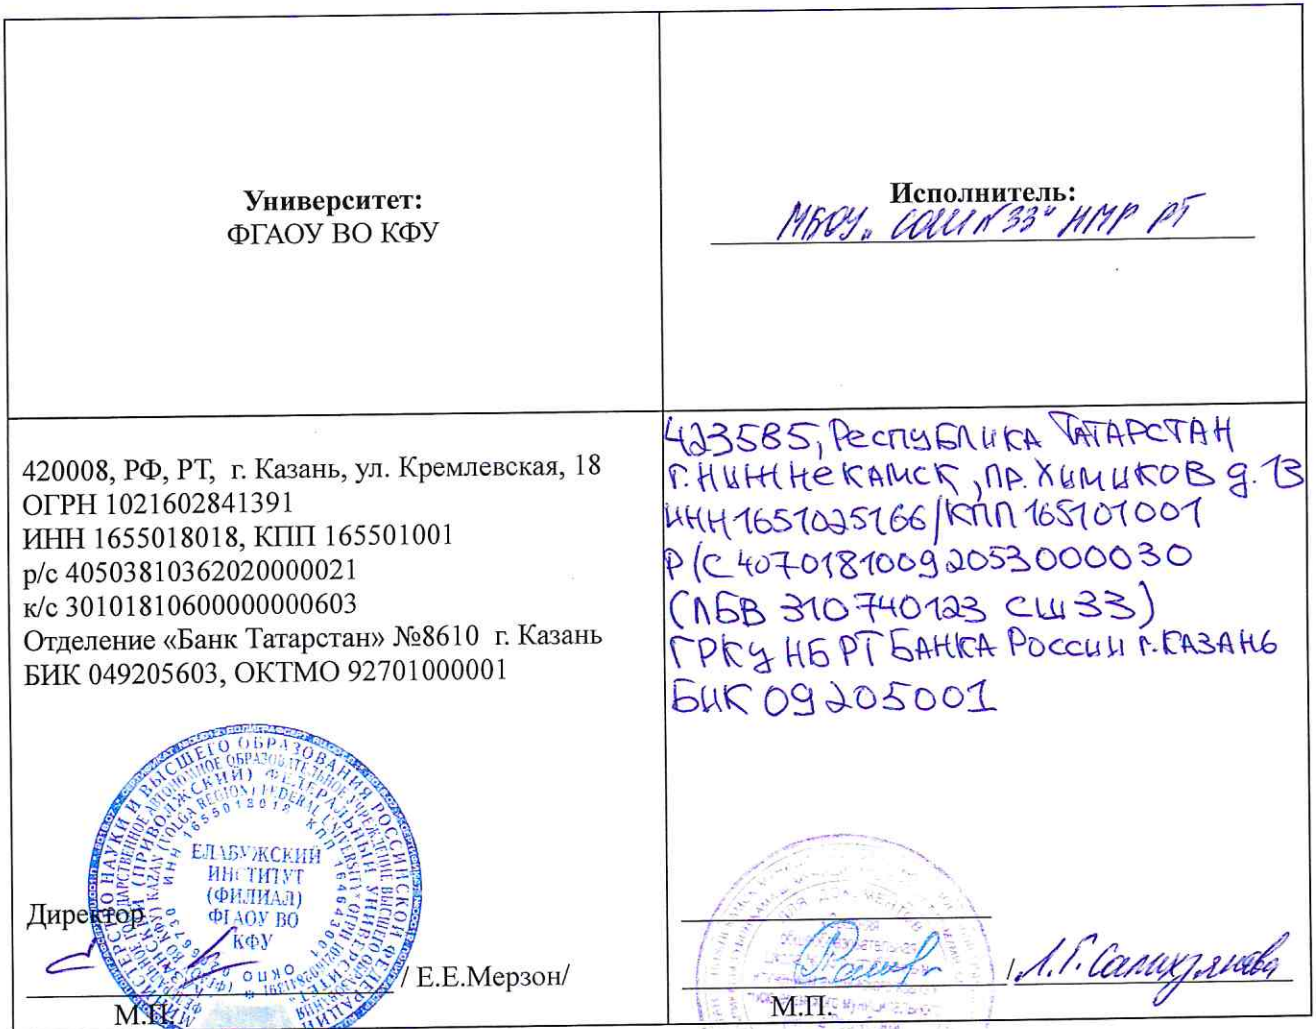 Университет:
ФГАОУ ВО КФУ
Исполнитель:
МБОУ „СОШ №33" НМР РТ
420008, РФ, РТ, г. Казань, ул. Кремлевская, 18
ОГРН 1021602841391
ИНН 1655018018, КПП 165501001
р/с 40503810362020000021
к/с 30101810600000000603
Отделение «Банк Татарстан» №8610 г. Казань
БИК 049205603, ОКТМО 92701000001
ЕЛАБУЖСКИЙ
ИНСТИТУТ
(ФИЛИАЛ)
ФГАОУ ВО
КФУ
Директор
/ Е.Е.Мерзон/
М.П.
423585, Республика Татарстан
г. Нижнекамск, пр. Химиков д. 13
ИНН 1651025166/КПП 165101001
Р/С 40701810092053000030
(ЛБВ 310740123 СШ 33)
ГРКЦ НБ РТ Банка России г. Казань
БИК 09205001
/ Л.Г. Салихзянова
М.П.